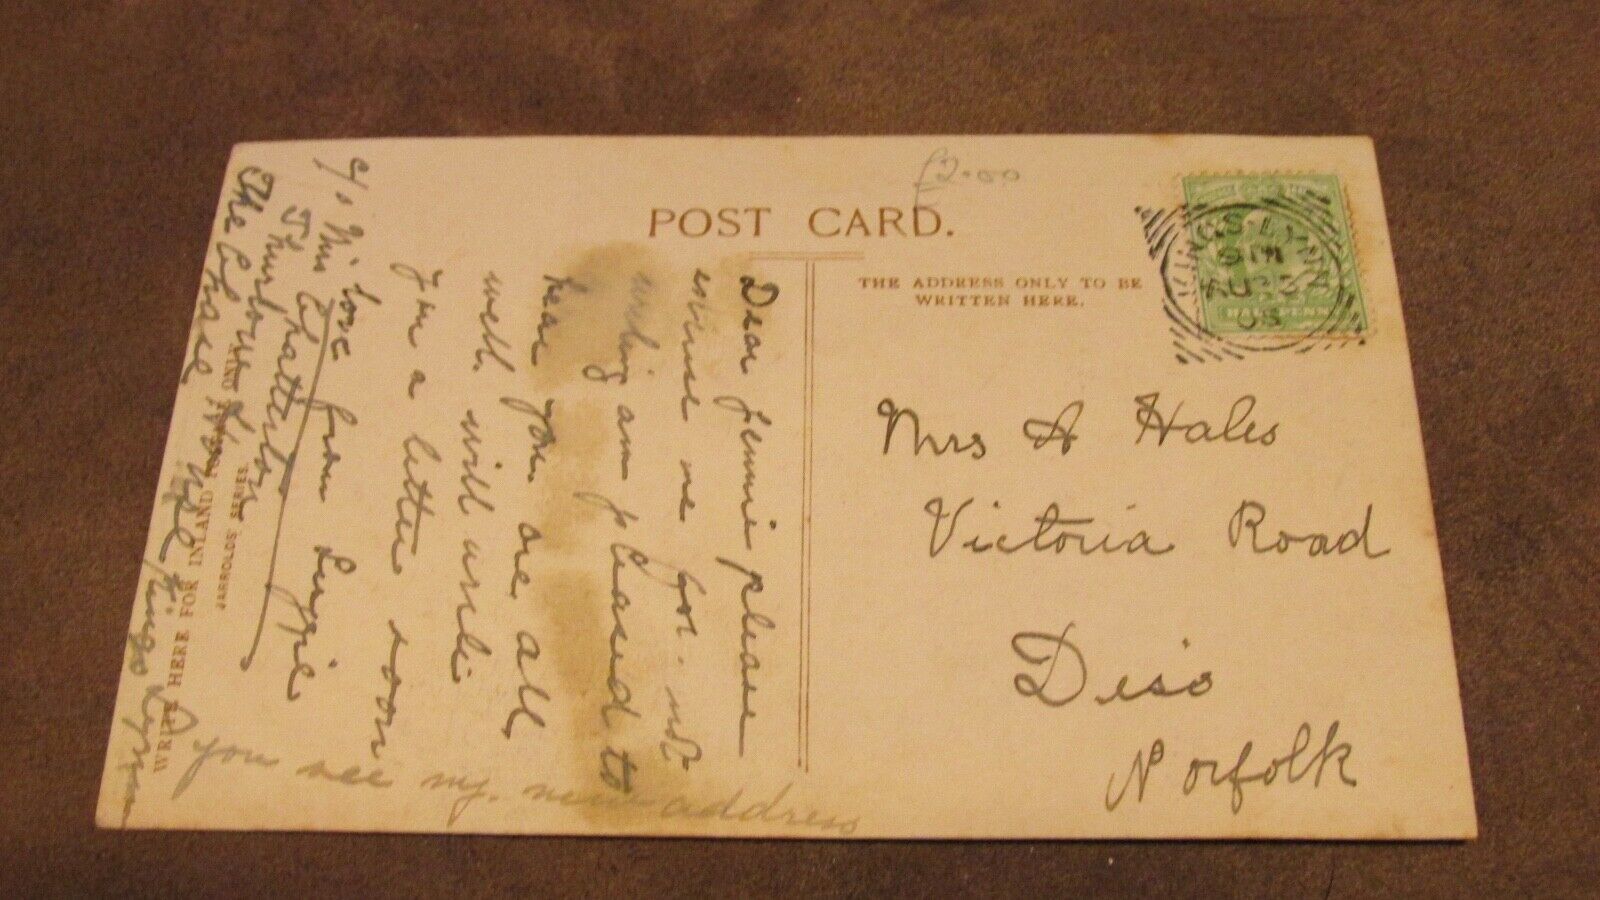 £2.00
POST CARD.
THE ADDRESS ONLY TO BE
WRITTEN HERE.
KING'S LYNN
AU
05
HALFPENNY
Mrs A Hales
Victoria Road
Diss
Norfolk
Dear Jennie please
excuse me for not
writing am pleased to
hear you are all
well. will write
you a letter soon
love from Lizzie
c/o Mrs Chatterton
Thurlow House
The Chase Kings Lynn
you see my new address
WRITE HERE FOR INLAND POSTAGE ONLY.
JARROLDS' SERIES.